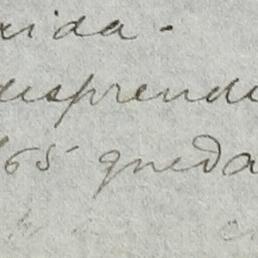 rida.
desprendi
65 queda